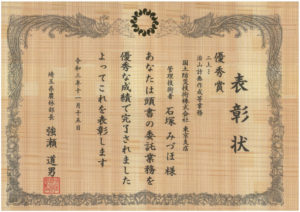 表彰状
優秀賞
治山計画作成等業務
国土防災技術株式会社 東京支店
管理技術者 石塚 みづほ 様
あなたは頭書の委託業務を
優秀な成績で完了されました
よってこれを表彰します
令和三年十一月十五日
埼玉県農林部長 強瀬 道男